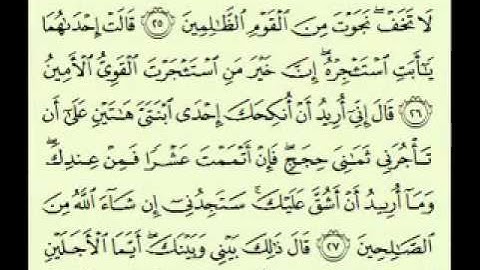 لَا تَخَفْ ۖ نَجَوْتَ مِنَ ٱلْقَوْمِ ٱلظَّٰلِمِينَ ٢٥ قَالَتْ إِحْدَىٰهُمَا
يَٰٓأَبَتِ ٱسْتَـْٔجِرْهُ ۖ إِنَّ خَيْرَ مَنِ ٱسْتَـْٔجَرْتَ ٱلْقَوِىُّ ٱلْأَمِينُ
٢٦ قَالَ إِنِّىٓ أُرِيدُ أَنْ أُنكِحَكَ إِحْدَى ٱبْنَتَىَّ هَٰتَيْنِ عَلَىٰٓ أَن
تَأْجُرَنِى ثَمَٰنِىَ حِجَجٍ ۖ فَإِنْ أَتْمَمْتَ عَشْرًا فَمِنْ عِندِكَ ۖ
وَمَآ أُرِيدُ أَنْ أَشُقَّ عَلَيْكَ ۚ سَتَجِدُنِىٓ إِن شَآءَ ٱللَّهُ مِنَ
ٱلصَّٰلِحِينَ ٢٧ قَالَ ذَٰلِكَ بَيْنِى وَبَيْنَكَ ۖ أَيَّمَا ٱلْأَجَلَيْنِ